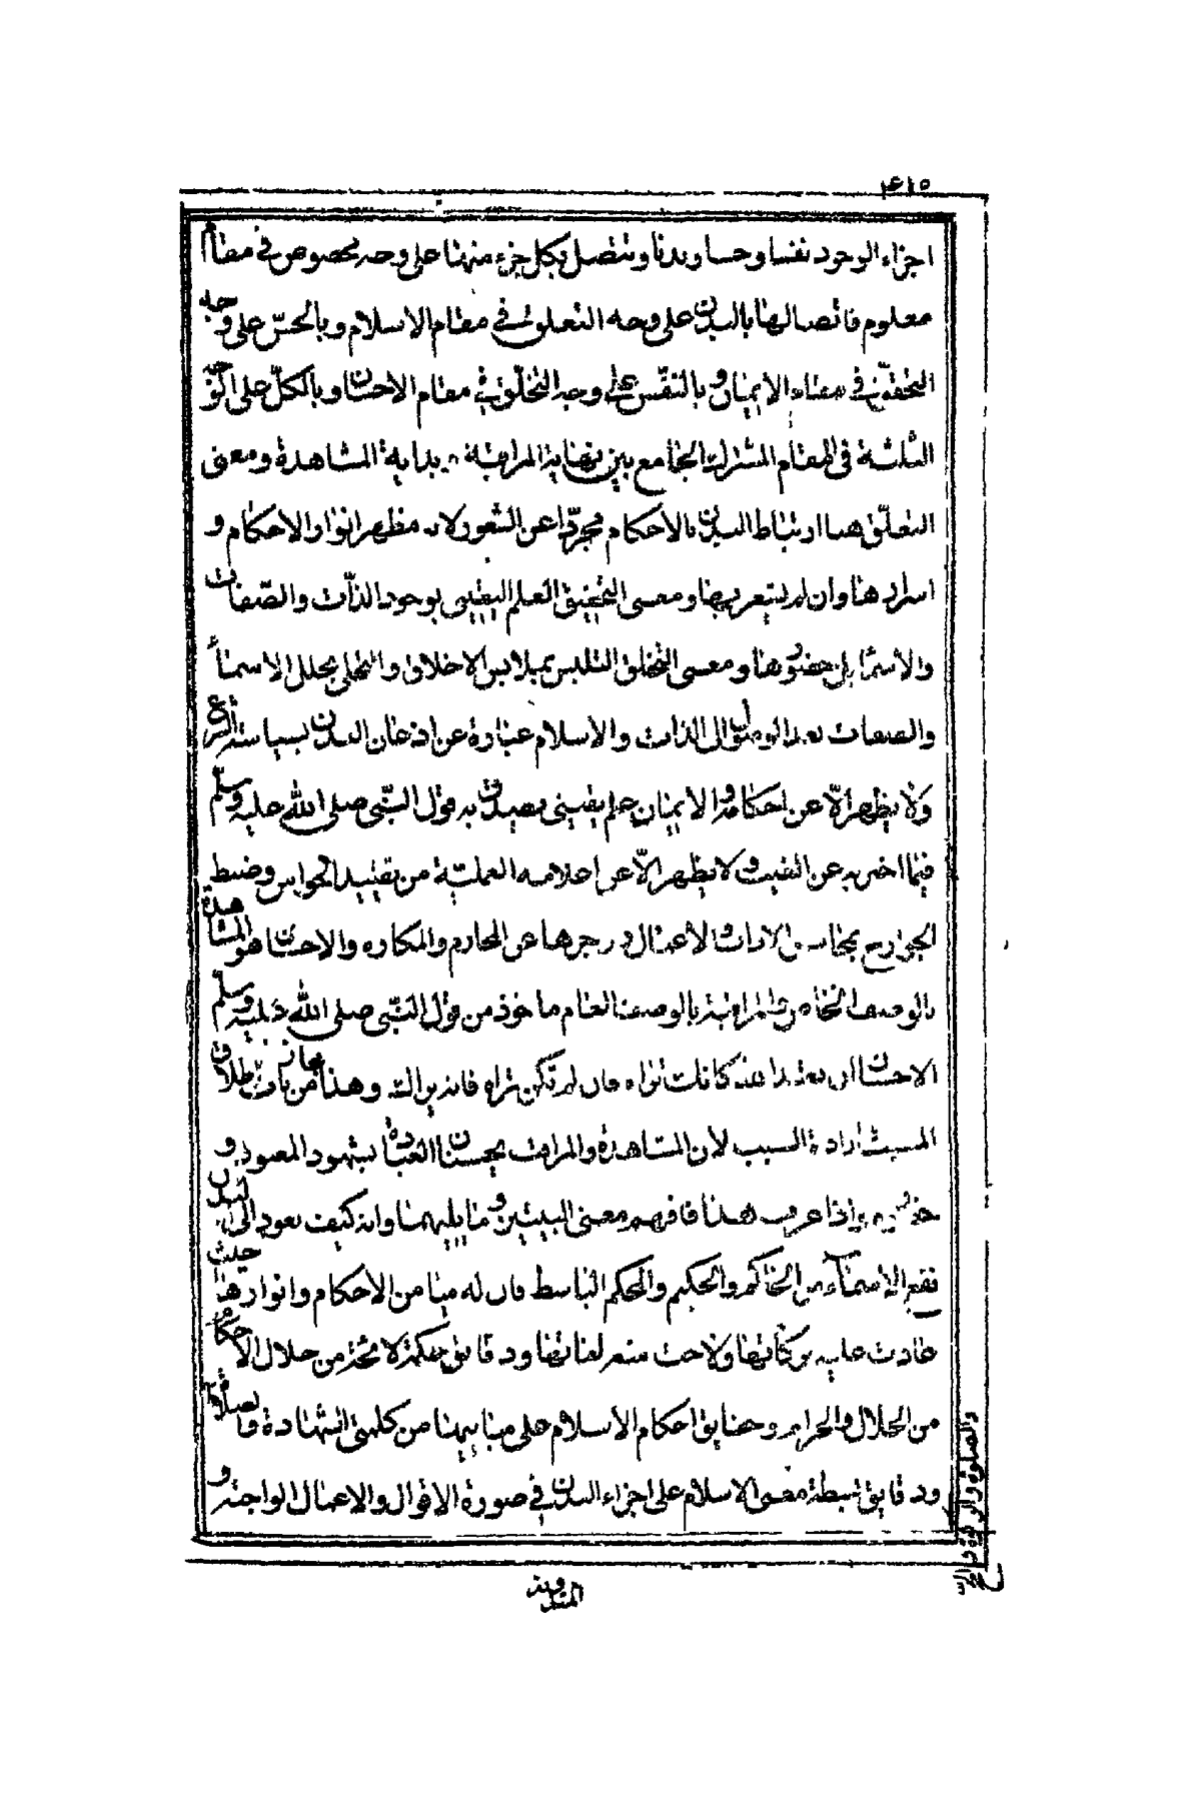 اجزاء الوجود نفسا وحسا وبدنا وتتصل بكل جزء منها على وجه مخصوص في مقام
معلوم فاتصالها بالبدن على وجه التعلق في مقام الاسلام وبالحسّ على وجه
التحقّق في مقام الايمان وبالنفس على وجه التخلّق في مقام الاحسان وبالكلّ على الوجوه
الثلثة في المقام المشترك الجامع بين نهاية المراقبة وبداية المشاهدة ومعنى
التعلّق هنا ارتباط البدن بالاحكام مجردّا عن الشعور لانه مظهر انوار الاحكام و
اسرارها وان لم يشعر بها ومعنى التحقيق العلم اليقيني بوجود الذّات والصّفات
والاسماء بل حضورها ومعنى التخلق التلبس بملابس الاخلاق والتحلي بحلل الاسماء
والصفات بعد الوصول الى الذات والاسلام عبارة عن اذعان البدن لسياسة الشرع
ولا يظهر الّا عن احكامه والايمان علم يقيني يصدق به قول النبّي صلى الله عليه وسلّم
فيما اخبر به عن الغيب ولا يظهر الّا عن اعلامه العمليّة من تقييد الحواس وضبط
الجوارح الاعمال وزجرها عن المحارم والمكاره والاحسان هو المشاهدة
بالوصف الخاص والمراقبة بالوصف العام ماخوذ من قول النبّي صلى الله عليه وسلّم
الاحسان ان تعبد الله كانك تراه فان لم تكن تراه فانه يراك وهذا من باب اطلاق
المسبب وارادة السبب لان المشاهدة والمراقبة يحسنان العبادة لشهود المعبود و
واذا عرفت هذا فافهم معنى البيتين وما يليهما وانه كيف يعود الى البدن
نفع الاسماء من الحاكم والحكيم والمحكم الباسط فان له منها من الاحكام وانوارها حيث
عادت عليه بركاتها ولاحت منه لمعاتها ودقايق حكمة لامحة من خلال الاحكام
من الحلال والحرام وحقايق احكام الاسلام على مبانيها من كلمتي الشهادة والصلاة
والصلوة والزكوة والحج
ودقايق بسطة معنى الاسلام على اجزاء البدن في صورة الاقوال والاعمال الواجبة و
المندوبة